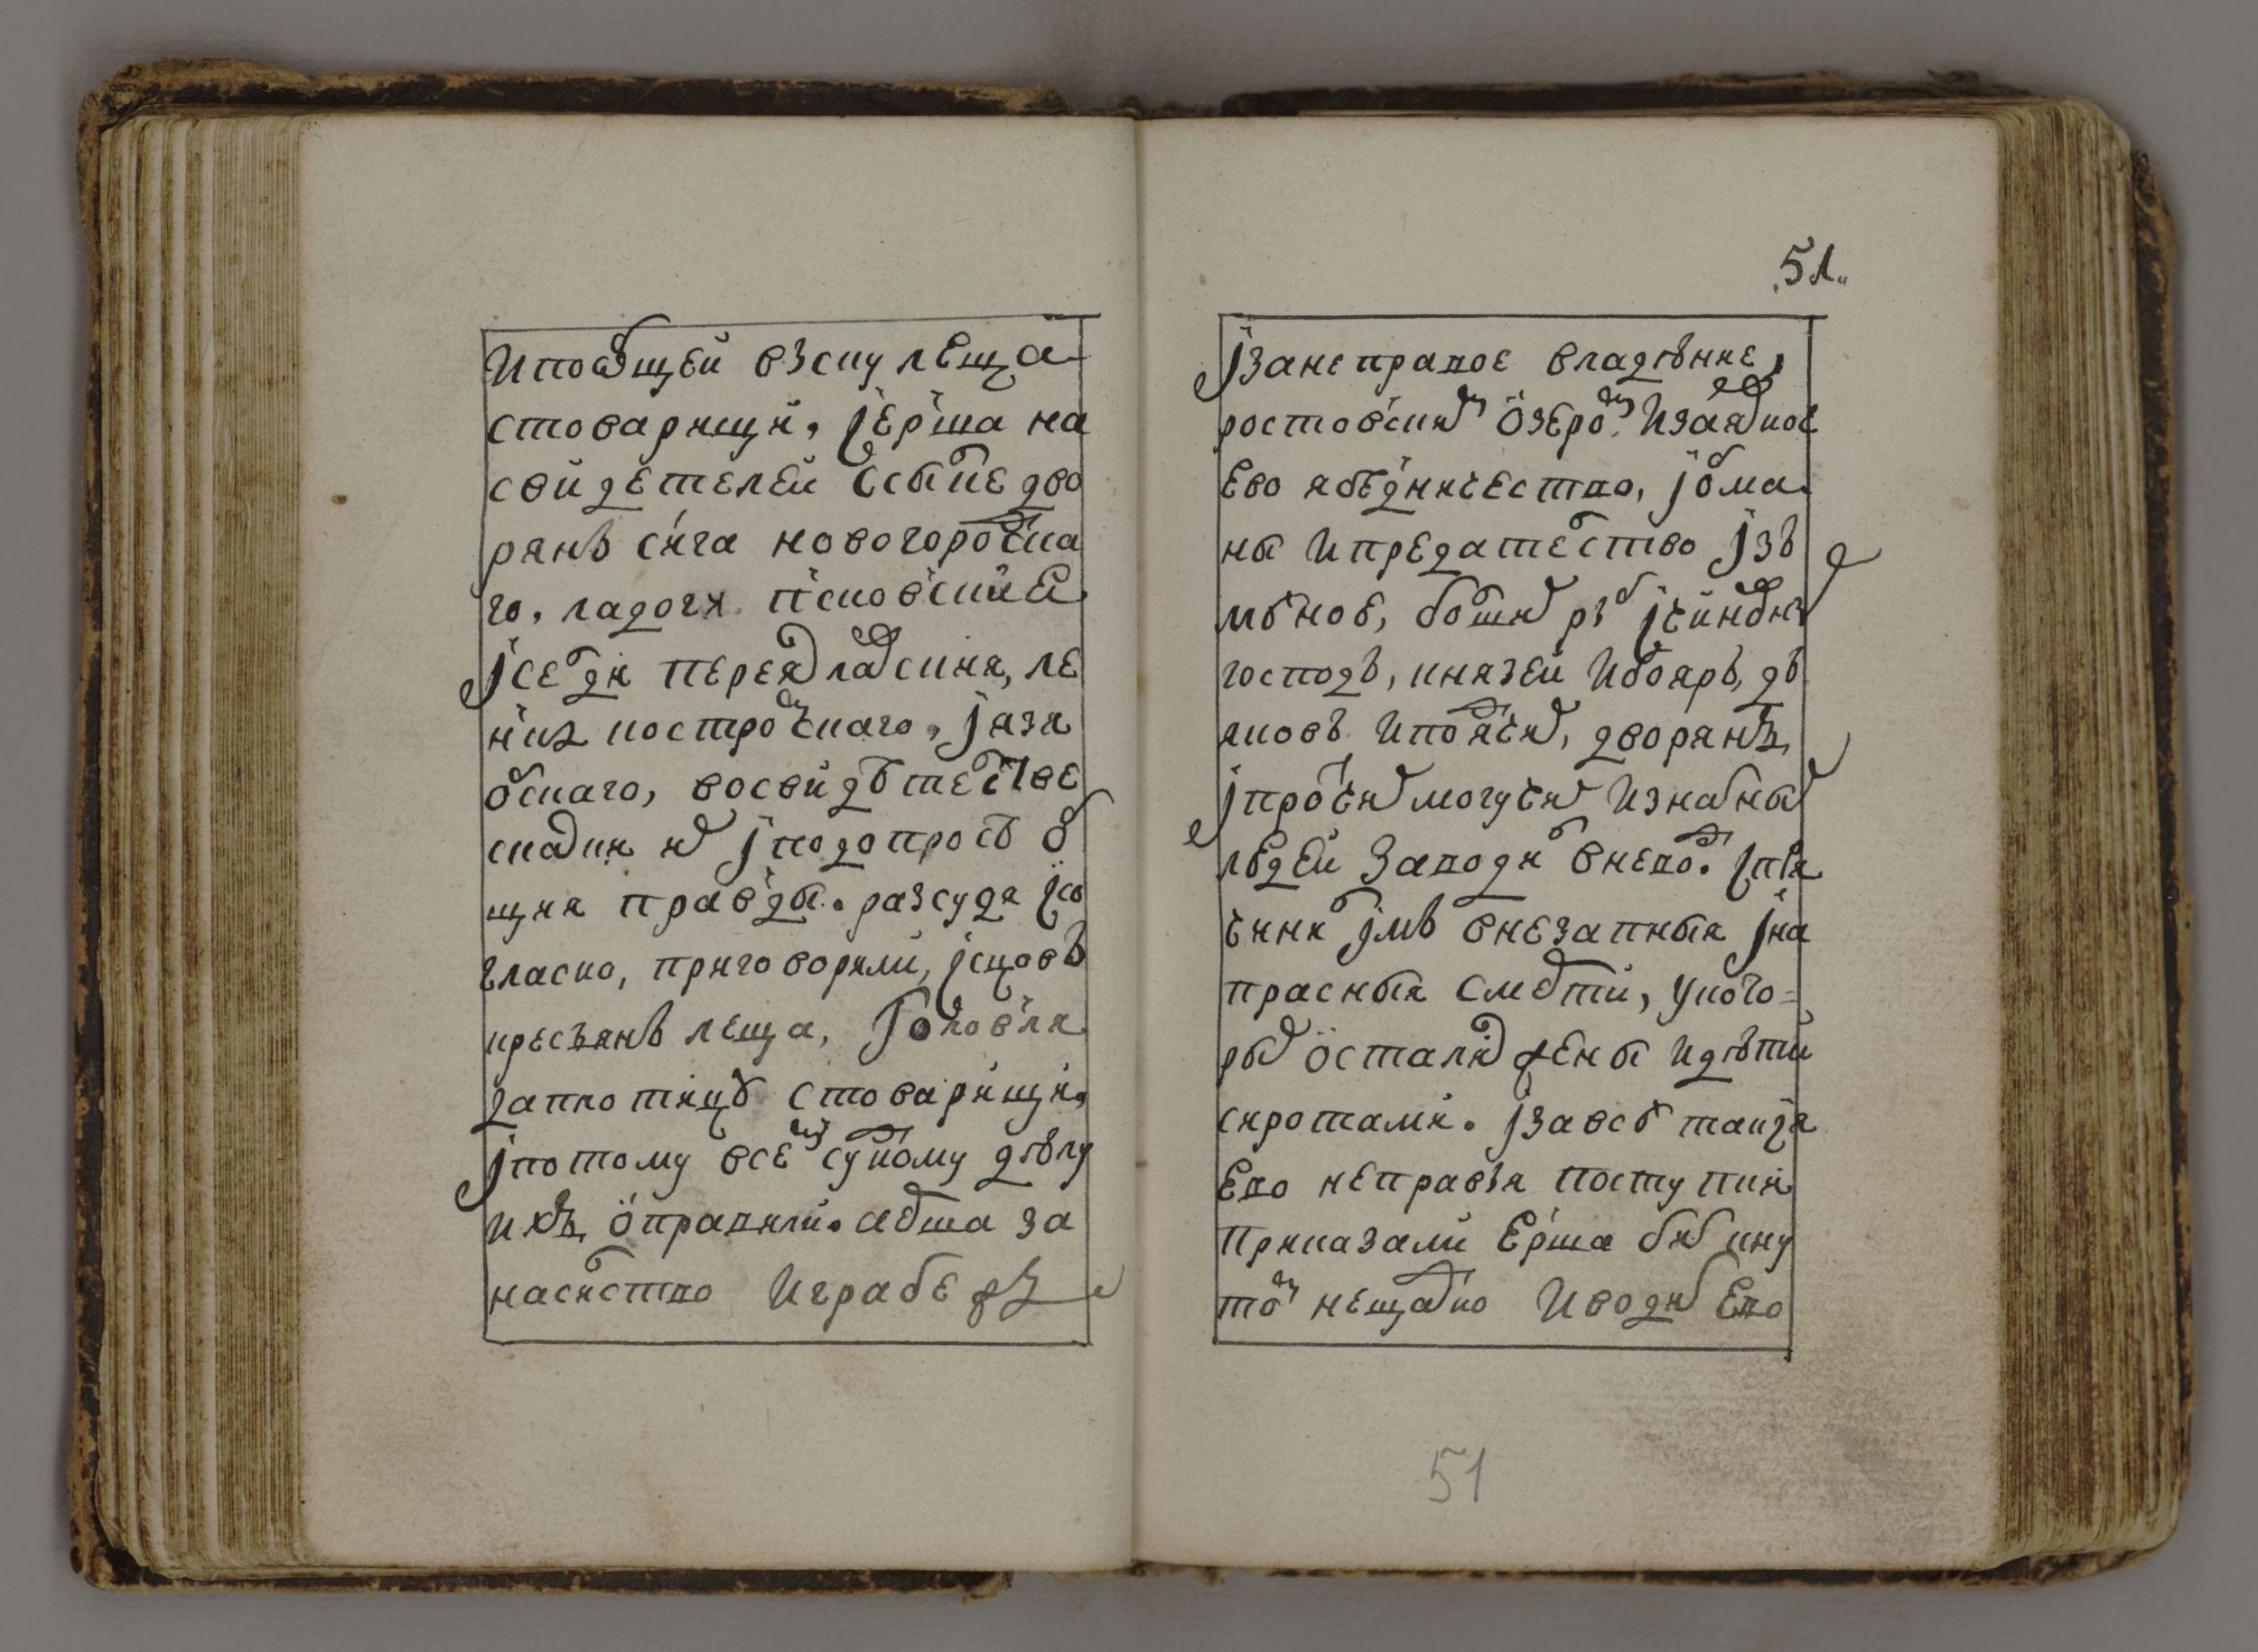 Ипообщей взску леща
стоварищи, јерша на
свидетелей ссылке дво
рянъ сига новогороцка
го, ладоги псковския
јселди переяславския, ле
никъ костроцкаго, јязя
обскаго, восвидѣтельстве
сказки их јподопросѣ
щия правды. разсудя јсо
гласно, приговорили, јсцовъ
кресьянъ леща, Головля
даплотицѣ стоварищи,
јпотому всему судному дѣлу
ихъ оправили. аерша за
насилство Играбеж
51
јзанеправое владѣние,
ростовским озером. Изаядное
Ево ябедничество, јобма
ны Ипредательство јзъ
мѣнов, больших ръб јчиновных
господъ, князей Ибояръ, дъ
яковъ Иподячих, дворянъ,
јпротчих могучих Изнатных
людей Заводил вневод. јпри
чинил јмъ внезапныя јна
прасныя смерти, укото=
рых остались жены Идѣти
сиротами. јзавсѣ такия
Ево неправыя поступки
Приказали Ерша бить кну
том нещадно Иводить Ево
51